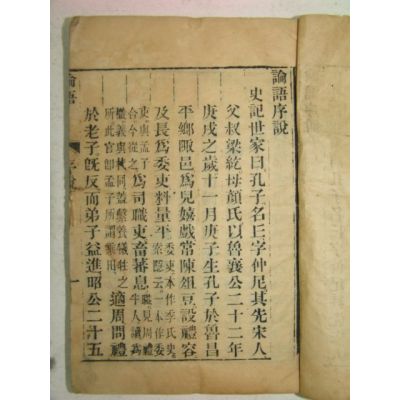 論語序說
史記世家曰孔子名丘字仲尼其先宋人
父叔梁紇母顏氏以魯襄公二十二年
庚戌之歲十一月庚子生孔子於魯昌
平鄉陬邑爲兒嬉戲常陳俎豆設禮容
及長爲委吏料量平委吏本作季氏史索隱云一本作委
吏與孟子合今從之爲司職吏畜蕃息職見周禮牛人讀爲
樴義與杙同蓋繫養犧牲之所此官卽孟子所謂乘田適周問禮
於老子旣反而弟子益進昭公二十五
論語
序說
一